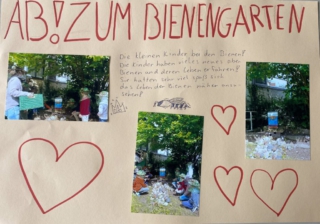 AB! ZUM BIENENGARTEN
Die kleinen Kinder bei den Bienen!
Die Kinder haben vieles neues über
Bienen und deren Leben erfahren!
Sie hatten sehr viel spaß sich
das Leben der Bienen näher anzu
sehen!